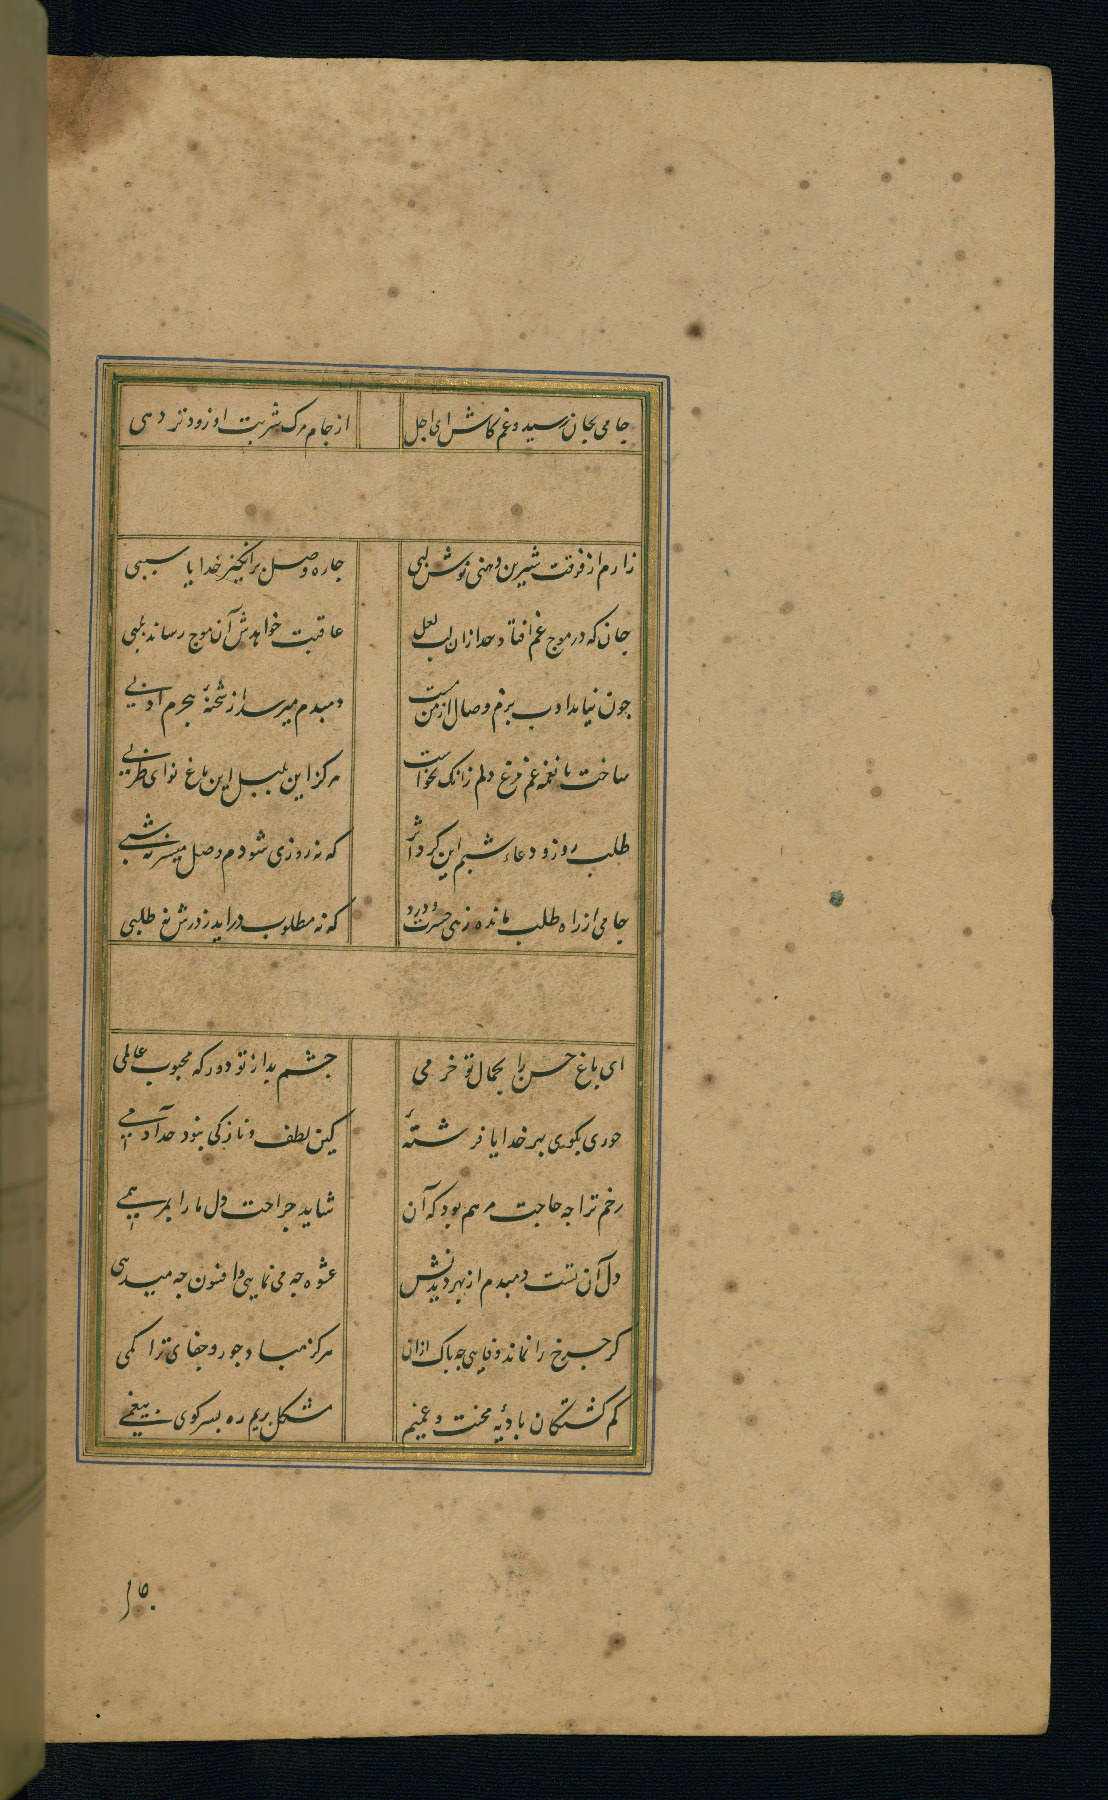 جامی بجان رسید و غم کاش ای اجل از جام مرک شربت او زودتر دهی
زارم از فرقت شیرین دهنی نوش لبی جاره وصل برانکیز خدایا سببی
جان که در موج غم افتاد جدا زان لب لعل عاقبت خواهدش آن موج رساند بلبی
جون نیامد ادب بزم وصال از من مست دمبدم میرسد از شحنهٔ هجرم ادبی
ساخت با نغمه غم مرغ دلم زانک نخواست هرکز این بلبل این باغ نوای طربی
طلب روز و دعاء شبم این کرد اثر که نه روزی شودم وصل میسر نه شبی
جامی از راه طلب مانده زهی حسرت و درد که نه مطلوب دراید ز درش نه طلبی
ای باغ حسن را بجمال تو خرمی جشم بد از تو دور که محبوب عالمی
حوری بکوی بهر خدا یا فرشتهٔ کین لطف و نازکی نبود حد آدمی
زخم ترا جه حاجت مرهم بود که آن شاید جراحت دل ما را بمرهمی
دل آن تست دمبدم از بهر دیدنش عشوه جه می نمایی و افسون جه میدمی
کر جرخ را نماند وفایی جه باک ازان هرکز مباد جور و جفای ترا کمی
کم کشتکان بادیهٔ محنت و غمیم مشکل بریم ره بسر کوی بیغمی